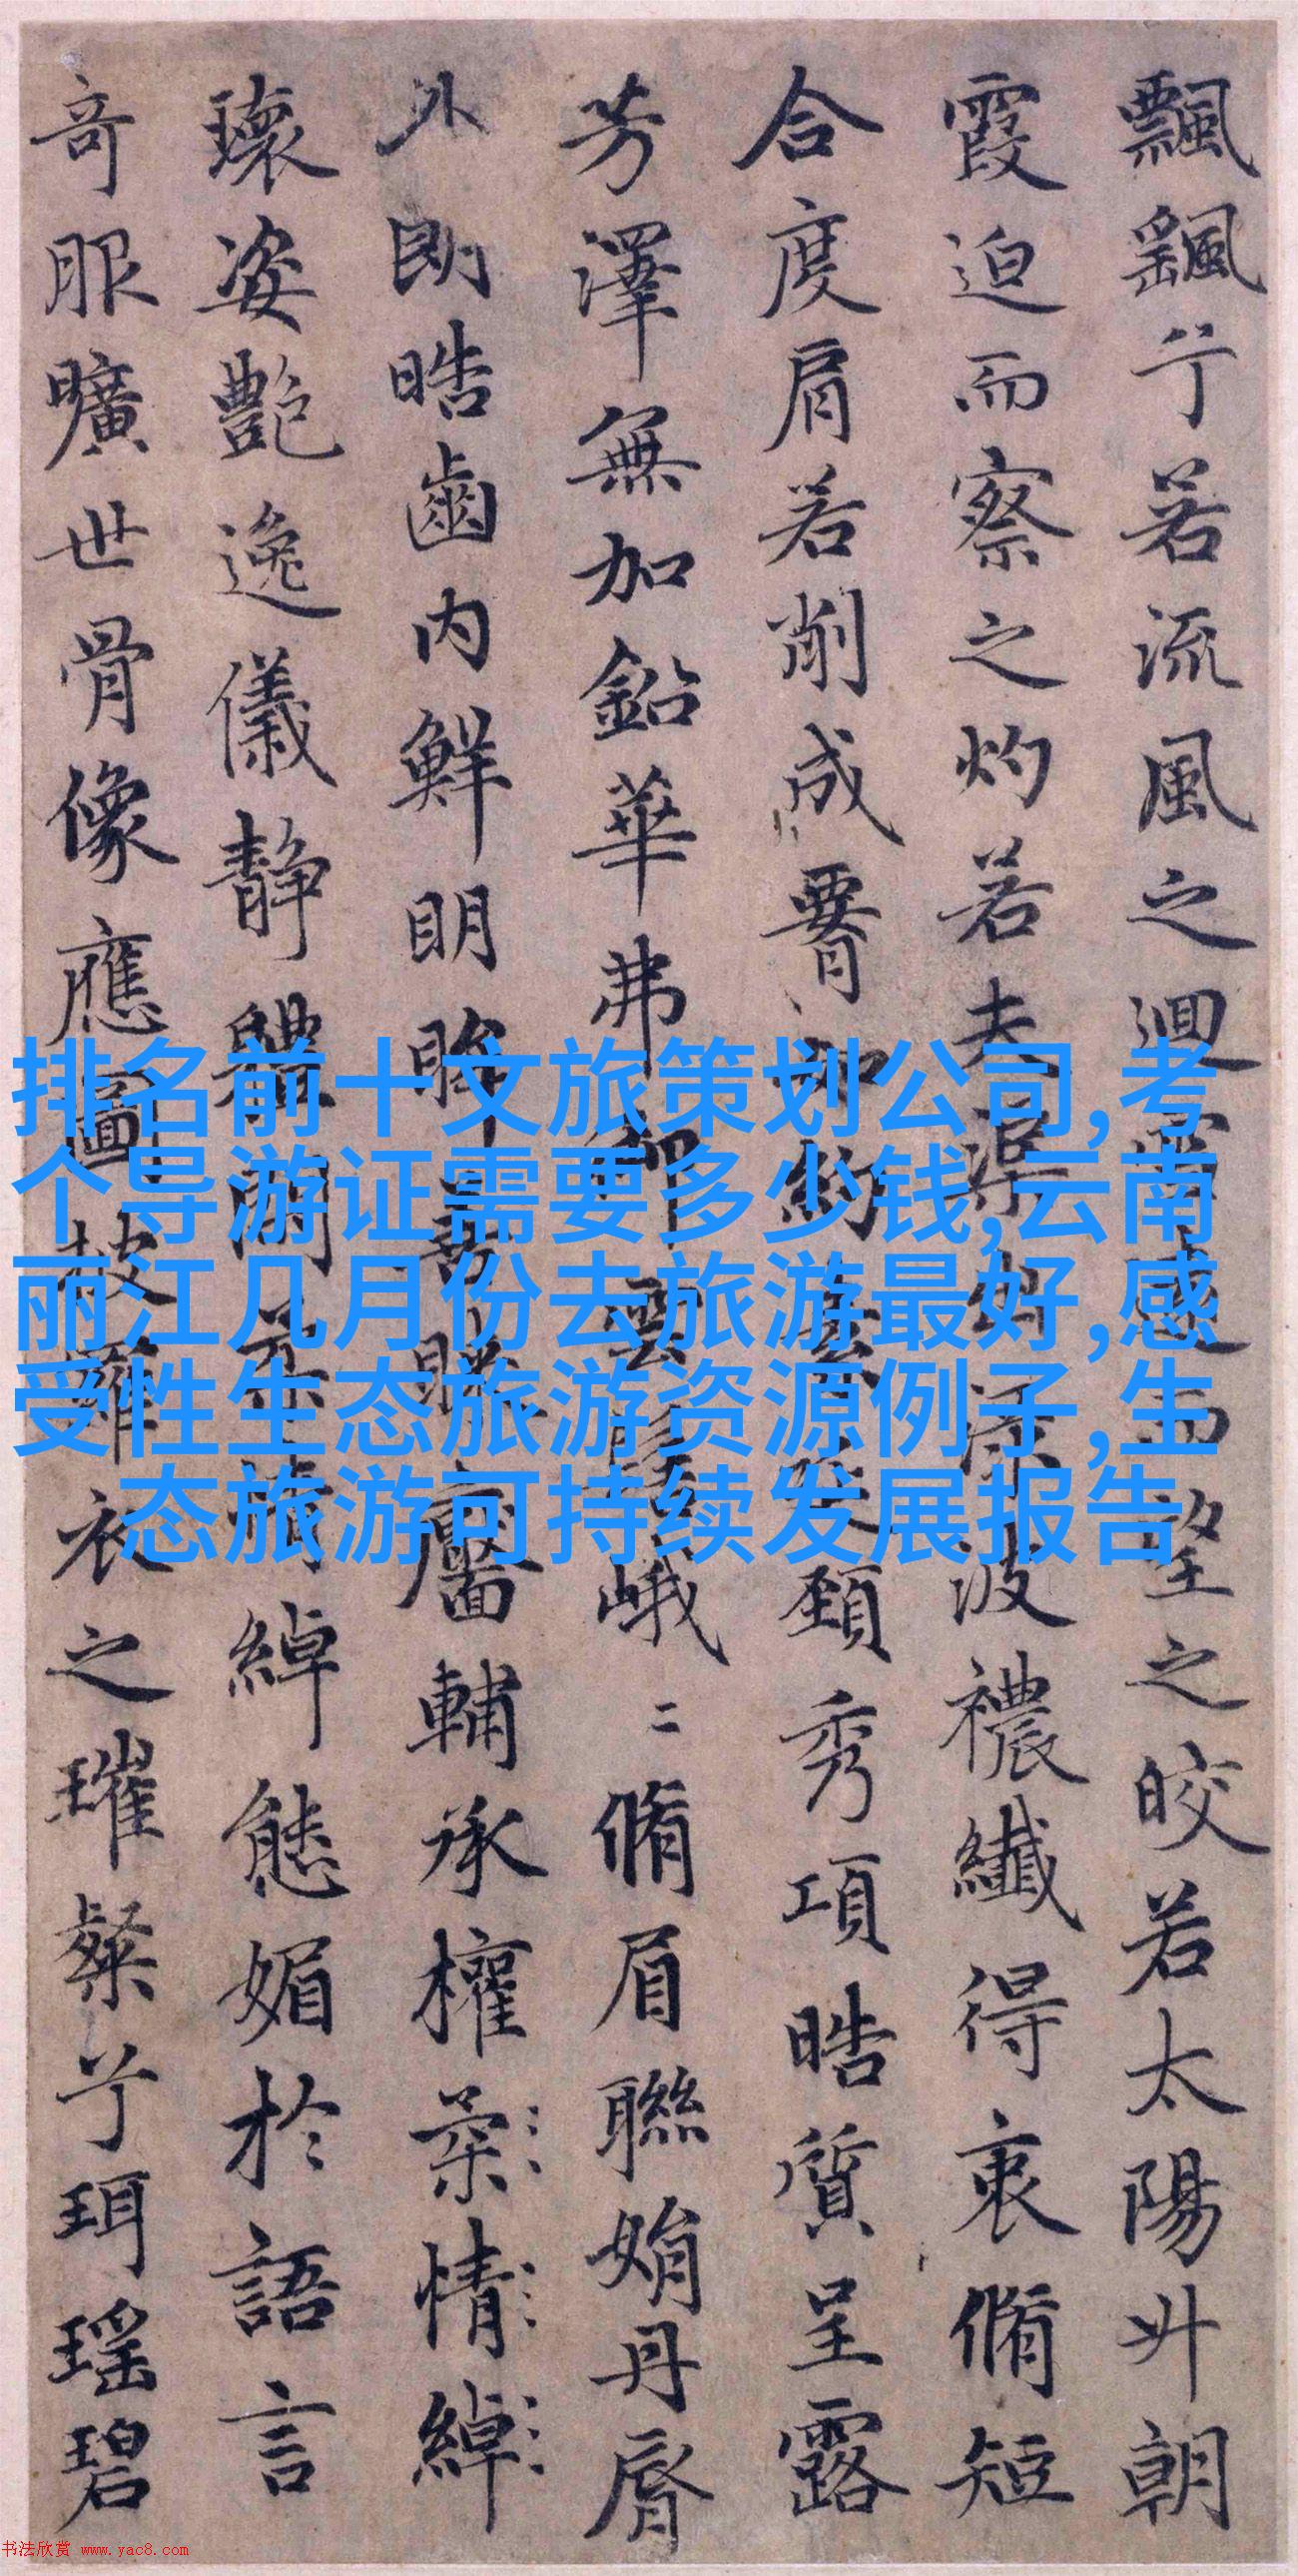 飄颻兮若流風之迴雪而望之皎若太陽升朝
霞迫而察之灼若夫渠出渌波襛纖得衷脩短
合度肩若削成腰如約素延頸秀項皓質呈露
芳澤無加鉛華弗御雲髻峨二脩眉聯娟丹脣
外朗皓齒内鮮明眸善睞靨輔承權柔情綽
瓌姿艷逸儀静體閑柔情綽態媚於語言
奇服曠世骨像應圖披羅衣之璀粲兮珥瑶碧
排名前十文旅策划公司,考
个导游证需要多少钱,云南
丽江几月份去旅游最好,感
受性生态旅游资源例子,生
态旅游可持续发展报告
书法欣赏 www.yac8.com